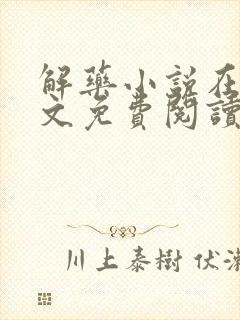 解藥小説在
文免費閱讀
川上泰樹 伏瀬